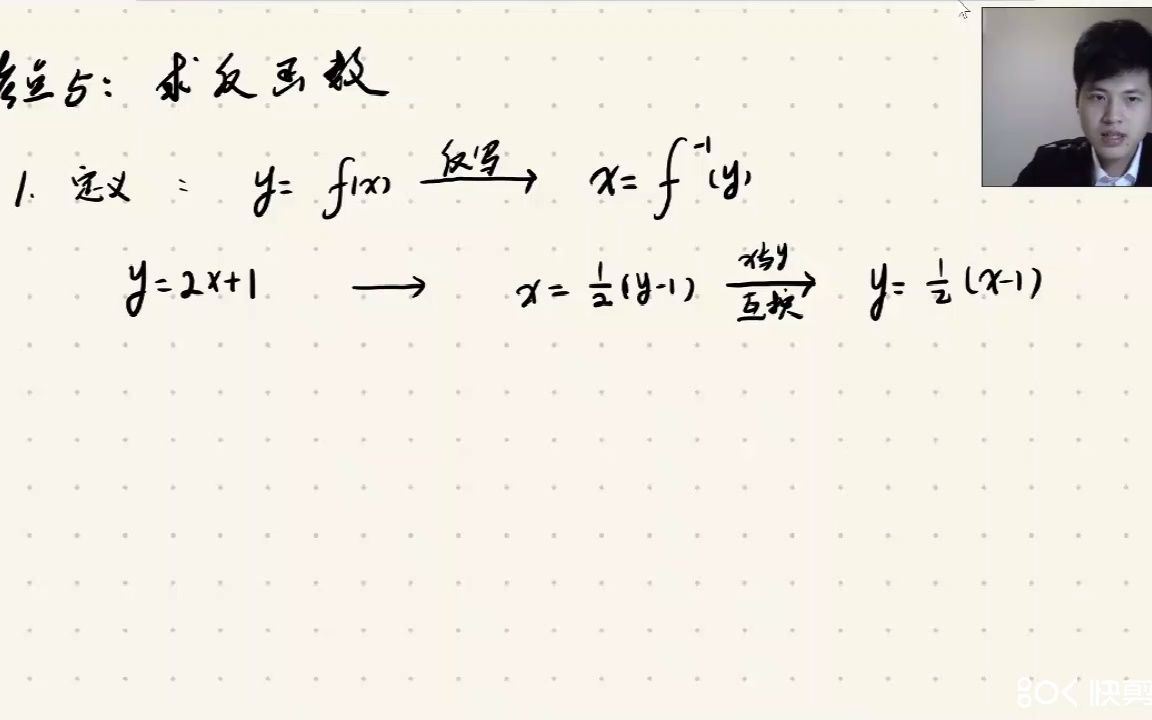 考点5：求反函数
1. 定义： y=f(x) 反写→ x=f⁻¹(y)
y=2x+1 → x=½(y-1) x与y互换→ y=½(x-1)
快剪